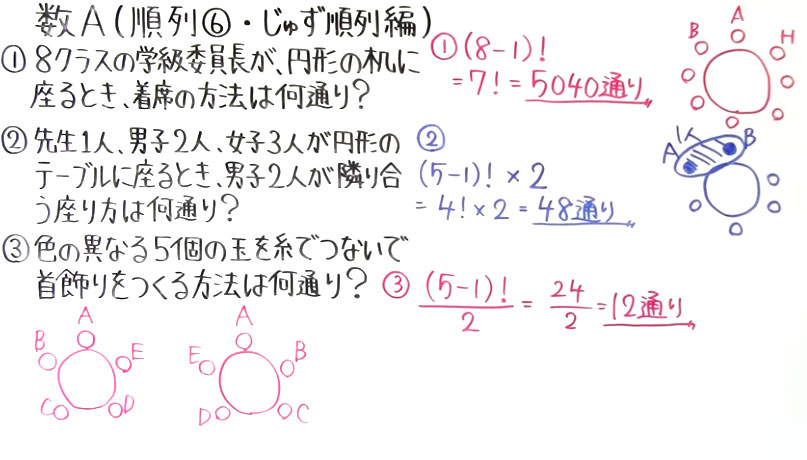 数A(順列⑥・じゅず順列編)
① 8クラスの学級委員長が、円形の机に
座るとき、着席の方法は何通り?
② 先生1人、男子2人、女子3人が円形の
テーブルに座るとき、男子2人が隣り合
う座り方は何通り?
③ 色の異なる5個の玉を糸でつないで
首飾りをつくる方法は何通り?
A
B
E
C
D
A
E
B
D
C
① (8-1)!
= 7! = 5040通り〃
A
B
H
②
(5-1)! × 2
= 4! × 2 = 48通り〃
1人
A
B
③ (5-1)!/2 = 24/2 = 12通り〃